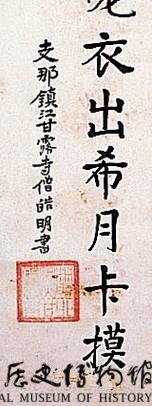 衣出希月卡摸
支那鎮江甘露寺僧皓明書
歷史博物館
MUSEUM OF HISTORY